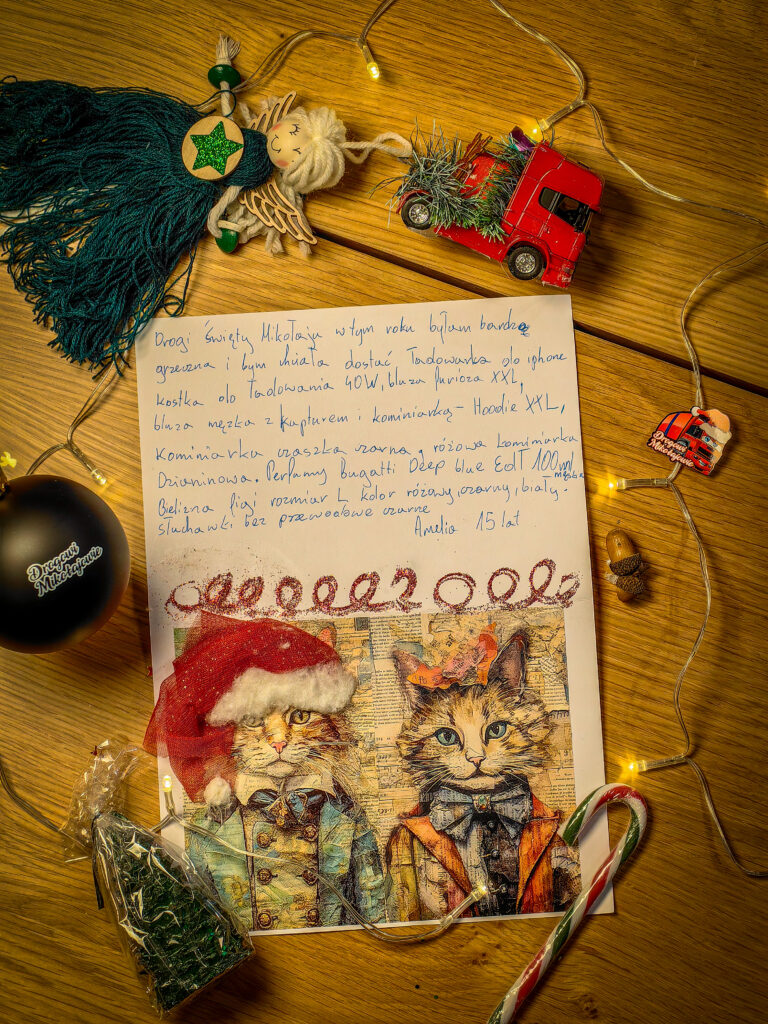 Drogi Święty Mikołaju w tym roku byłam bardzo
grzeczna i bym chciała dostać Ładowarka do iphone
kostka do Ładowania 40W, bluza furioza XXL,
bluza męzka z kapturem i kominiarką - Hoodie XXL,
Kominiarka czaszka czarna, różowa kominiarka
Dzianinowa. Perfumy Bugatti Deep blue EdT 100ml męskie
Bielizna figi rozmiar L kolor różowy, czarny, biały.
Słuchawki bez przewodowe czarne
Amelia 15 lat
Drogowi
Mikołajowie
Drogowi
Mikołajowie